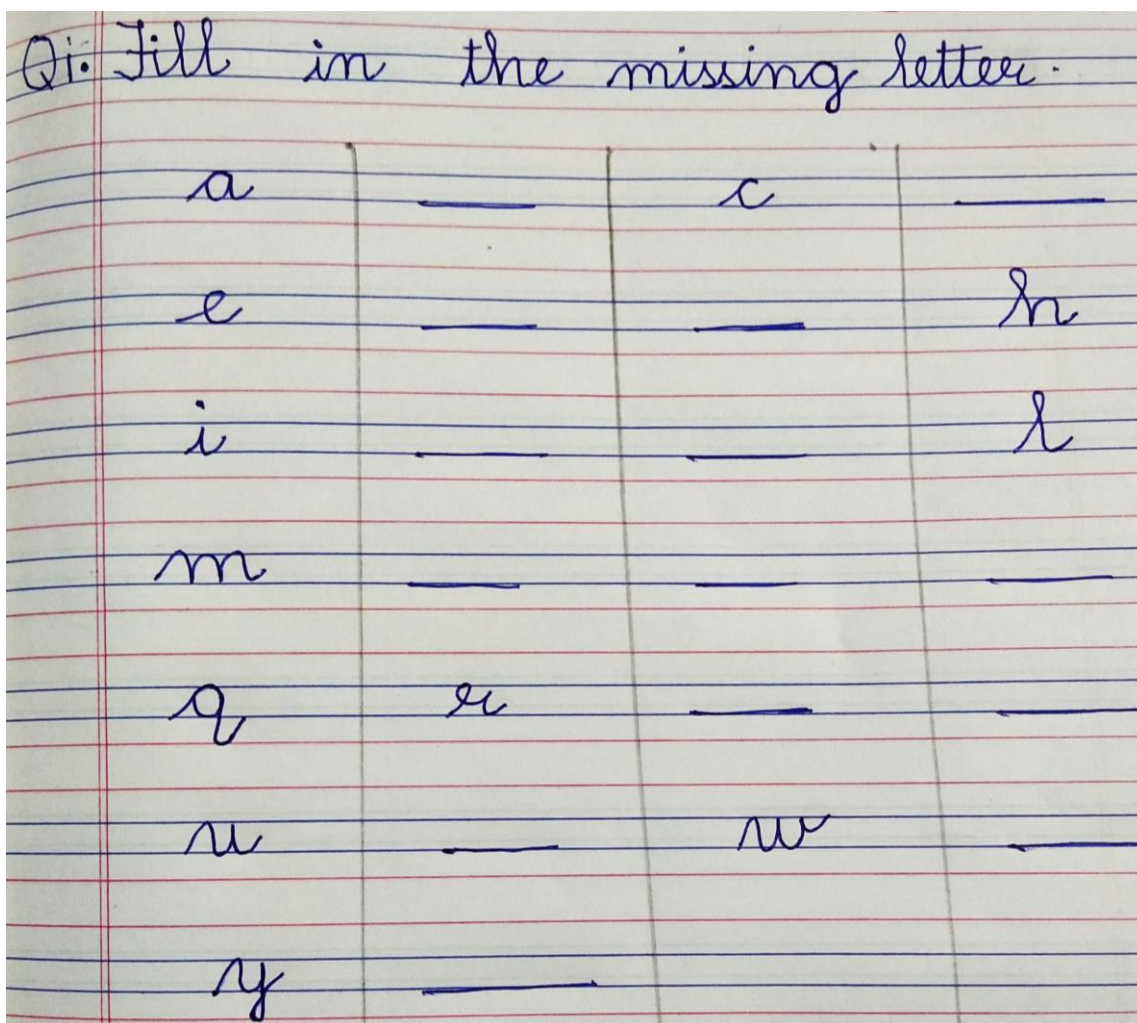 Qi. Fill in the missing letter.
a __ c __
e __ __ h
i __ __ l
m __ __ __
q r __ __
u __ w __
y __